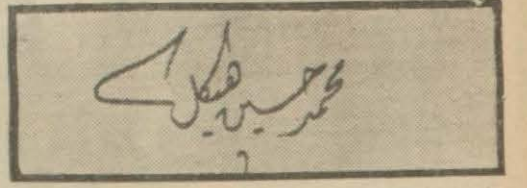 محمد حسين هيكل